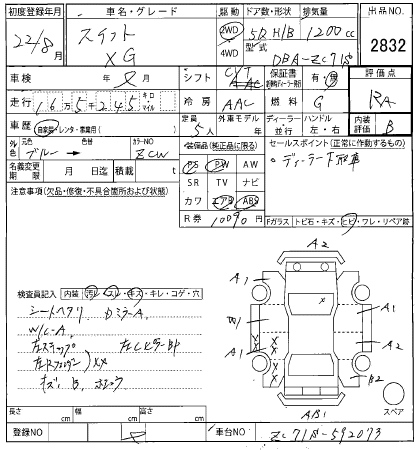 初度登録年月 車名・グレード 駆動 ドア数・形状 排気量 出品NO.
22/8月 スイフト XG 2WD 4WD 5D H/B 1200cc 2832
型式 DBA-ZC71S
車検 年 月 シフト CVT 保証書 有・無 評価点
走行 16万5千245 キロ マイル 冷房 AAC 燃料 G RA
車歴 自家用・レンタ・事業用( ) 定員 5人 外車モデル 年 ディーラー・並行 ハンドル 左・右 内装評価 B
外色 元色 ブルー 色替 カラーNO ZCW
装備品(純正品に限る) セールスポイント(正常に作動するもの)
名義変更期限 月 日迄 積載 t
PS PW AW
SR TV ナビ
カワ エアB ABS
・ディーラー下取車
注意事項(欠品・修復・不具合箇所および状態)
R券 10090円
Fガラス トビ石・キズ・ヒビ・ワレ・リペア跡
検査員記入 内装 汚レ・スレ・キズ・キレ・コゲ・穴
シートヘタリ
W/C-A
左ステップ
キズ、B、
A2
A1
W1
A1
A1
A2
B2
AB1
スペア
長さ cm 幅 cm 高さ cm
登録NO 車台NO ZC71S-592073